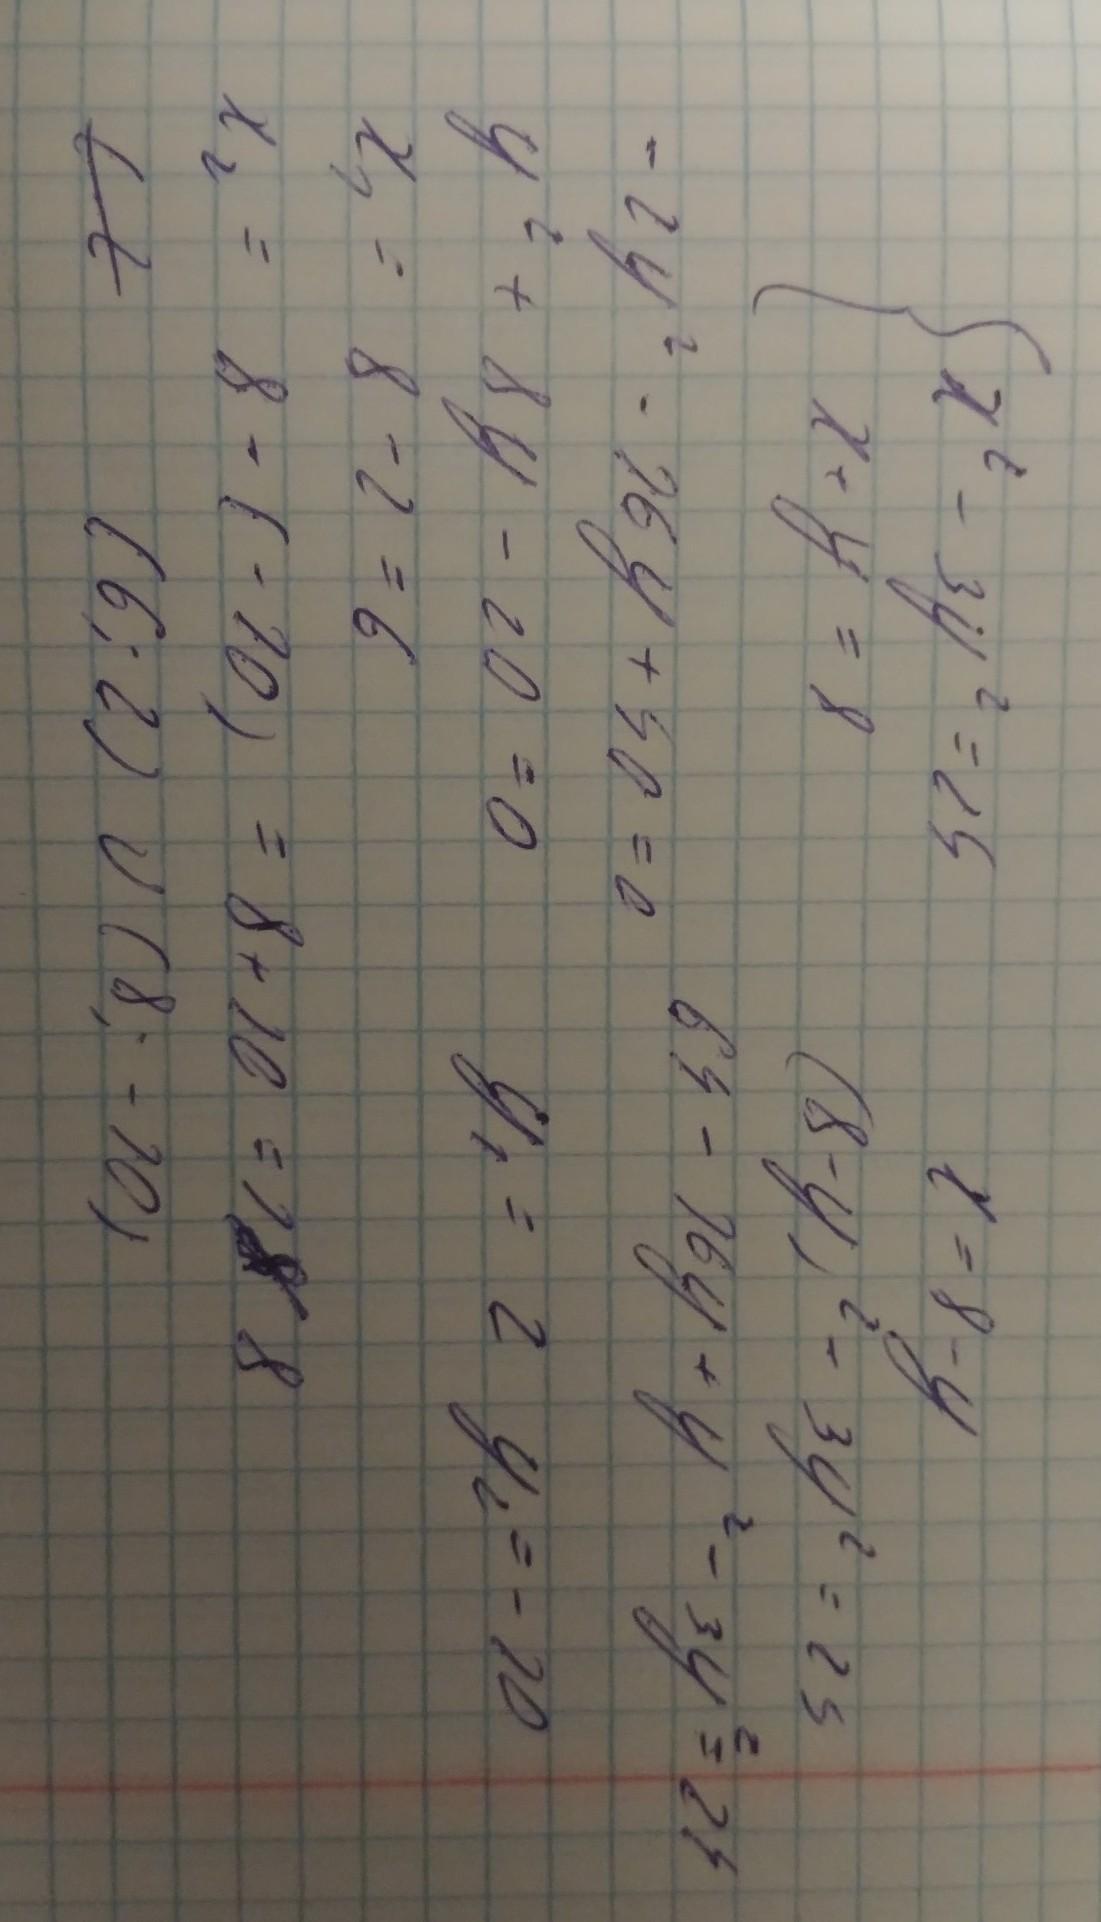 x² - 3y² = 24 x = 8 - y
x + y = 8 (8 - y)² - 3y² = 24
64 - 16y + y² - 3y² = 24
- 2y² - 16y + 40 = 0
y² + 8y - 20 = 0 y₁ = 2 y₂ = - 10
x₁ = 8 - 2 = 6
x₂ = 8 - (- 10) = 8 + 10 = 18
(6; 2) U (8; - 10)